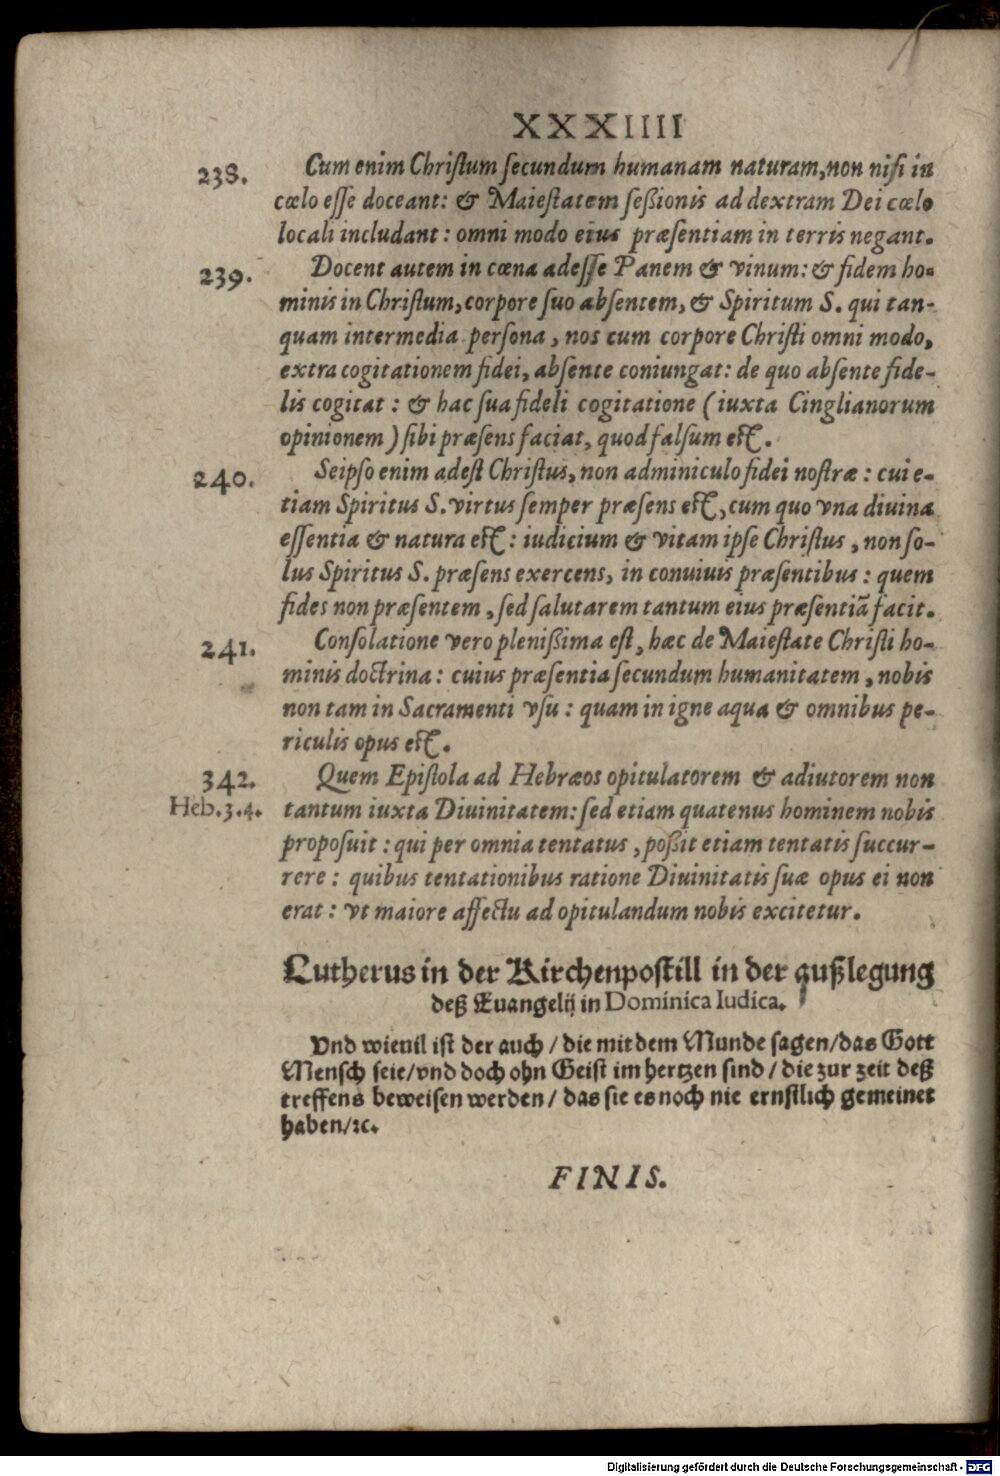 XXXIIII
238. Cum enim Christum secundum humanam naturam, non nisi in
cœlo esse doceant: & Maiestatem seßionis ad dextram Dei cœlo
locali includant: omni modo eius præsentiam in terris negant.
239. Docent autem in cœna adesse Panem & vinum: & fidem ho-
minis in Christum, corpore suo absentem, & Spiritum S. qui tan-
quam intermedia persona, nos cum corpore Christi omni modo,
extra cogitationem fidei, absente coniungat: de quo absente fide-
lis cogitat: & hac sua fideli cogitatione (iuxta Cinglianorum
opinionem) sibi præsens faciat, quod falsum est.
240. Seipso enim adest Christus, non adminiculo fidei nostræ: cui e-
tiam Spiritus S. virtus semper præsens est, cum quo vna diuina
essentia & natura est: iudicium & vitam ipse Christus, non so-
lus Spiritus S. præsens exercens, in conuiuis præsentibus: quem
fides non præsentem, sed salutarem tantum eius præsentiã facit.
241. Consolatione vero plenißima est, hæc de Maiestate Christi ho-
minis doctrina: cuius præsentia secundum humanitatem, nobis
non tam in Sacramenti vsu: quam in igne aqua & omnibus pe-
riculis opus est.
342. Quem Epistola ad Hebræos opitulatorem & adiutorem non
Heb.3.4. tantum iuxta Diuinitatem: sed etiam quatenus hominem nobis
proposuit: qui per omnia tentatus, poßit etiam tentatis succur-
rere: quibus tentationibus ratione Diuinitatis suæ opus ei non
erat: vt maiore affectu ad opitulandum nobis excitetur.
Lutherus in der Kirchenpostill in der außlegung
deß Euangelij in Dominica Iudica.
Vnd wieuil ist der auch / die mit dem Munde sagen / das Gott
Mensch seie / vnd doch ohn Geist im hertzen sind / die zur zeit deß
treffens beweisen werden / das sie es noch nie ernstlich gemeinet
haben / ꝛc.
FINIS.
Digitalisierung gefördert durch die Deutsche Forschungsgemeinschaft - DFG